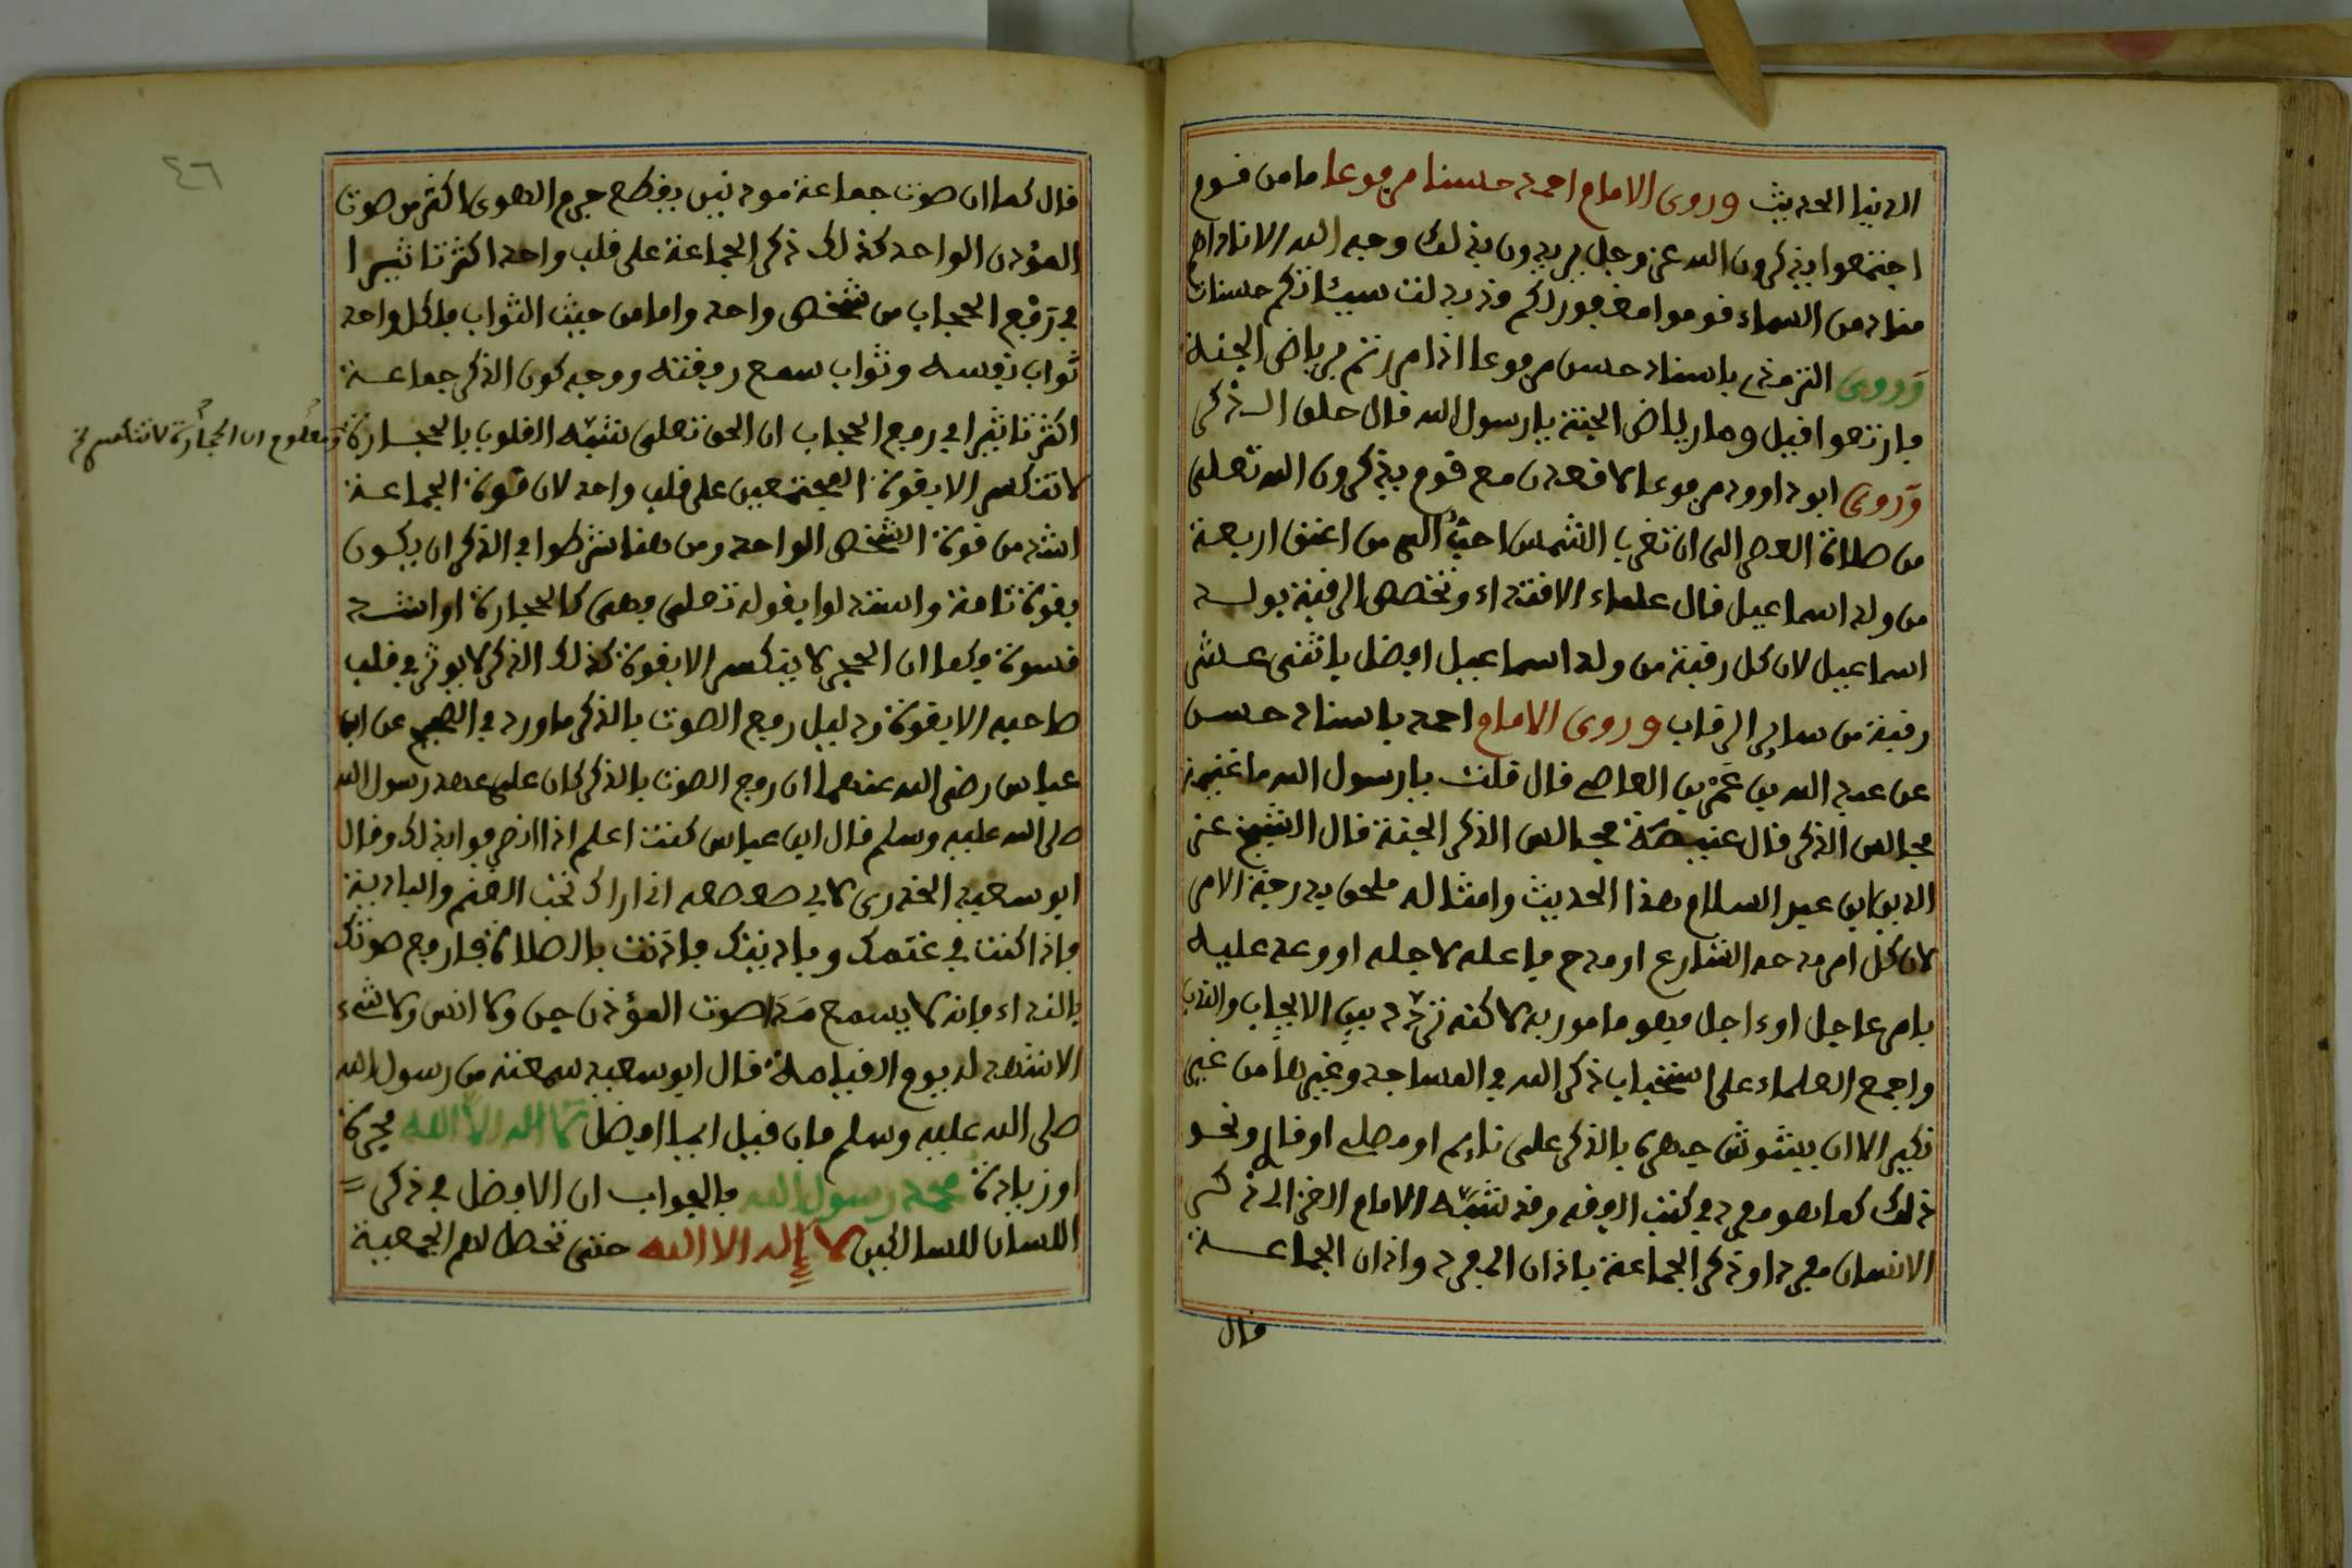 الدنيا الحديث وروى الامام احمد حسنا مرفوعا ما من قوم
اجتمعوا يذكرون الله عز وجل يريدون بذلك وجه الله الا ناداهم
مناد من السماء قوموا مغفور لكم قد بدلت سيئاتكم حسنات
وروى الترمذي باسناد حسن مرفوعا اذا مررتم برياض الجنة
فارتعوا قيل وما رياض الجنة يا رسول الله قال حلق الذكر
وروى ابو داوود مرفوعا لا قعدن مع قوم يذكرون الله تعلى
من صلاة العصر الى ان تغرب الشمس احب الي من اعتق اربعة
من ولد اسماعيل قال علماء الافتداء وتخصص الرقبة بولد
اسماعيل لان كل رقبة من ولد اسماعيل افضل باثنى عشر
رقبة من ساير الرقاب وروى الامام احمد باسناد حسن
عن عبد الله بن عمر بن العاصى قال قلت يا رسول الله ما غنيمة
مجالس الذكر قال غنيمة مجالس الذكر الجنة قال الشيخ عز
الدين ابن عبد السلام هذا الحديث وامثاله ملحق بدرجة الامر
لان كل امر مدحه الشارع او مدح فاعله لاجله او وعد عليه
بامر عاجل اوءاجل فهو مامور به لاكنه تردد بين الايجاب والندب
واجمع العلماء على استحباب ذكر الله في المساجد وغيرها من غير
نكير الا ان يشوش جهره بالذكر على نايم او مصلى او قار ونحو
ذلك كما هو مقرر في كتب الفقه وقد شبه الامام الغزالى ذكر
الانسان مفردا وذكر الجماعة باذان المفرد واذان الجماعة
قال
٤٦
قال كما ان صوت جماعة موذنين يقطع جرم الهوى اكثر من صوت
المؤذن الواحد كذلك ذكر الجماعة على قلب واحد اكثر تاثيرا
في رفع الحجاب من شخص واحد واما من حيث الثواب فلكل واحد
ثواب نفسه وثواب سمع رفقته ووجه كون الذكر جماعة
اكثر تاثيرا في رفع الحجاب ان الحق تعلى شبه القلوب بالحجارة
ومعلوم ان الحجارة لا تنكسر
لا تنكسر الا بقوة المجتمعين على قلب واحد لان قوة الجماعة
اشد من قوة الشخص الواحد ومن هنا شرطوا في الذكر ان يكون
بقوة تامة واستدلوا بقوله تعلى فهى كالحجارة او اشد
قسوة فكما ان الحجر لا ينكسر الا بقوة كذلك الذكر لا يوثر في قلب
صاحبه الا بقوة ودليل رفع الصوت بالذكر ما ورد في الصحيح عن ابن
عباس رضى الله عنهما ان رفع الصوت بالذكر كان على عهد رسول الله
صلى الله عليه وسلم قال ابن عباس كنت اعلم اذا انصرفوا بذلك وقال
ابو سعيد الخدرى لابى صعصعه انى اراك تحب الغنم والبادية
فاذا كنت في غنمك وباديتك فاذنت بالصلاة فارفع صوتك
بالنداء فانه لا يسمع مدا صوت المؤذن جن ولا انس ولا شيء
الا شهد له يوم القيامة قال ابو سعيد سمعته من رسول الله
صلى الله عليه وسلم فان قيل ايها افضل لا اله الا الله مجردة
او زيادة محمد رسول الله فالجواب ان الافضل في ذكر
اللسان للسالكين لا إله الا الله حتى تحصل لهم الجمعية